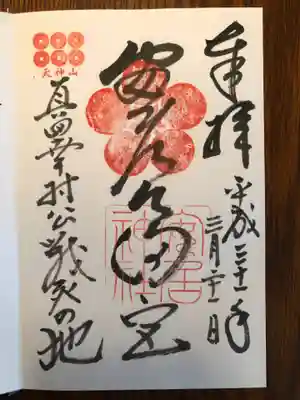 奉拝
平成三十一年
三月二十一日
安居天満宮
安居
神社
天神山
真田幸村公戦死の地